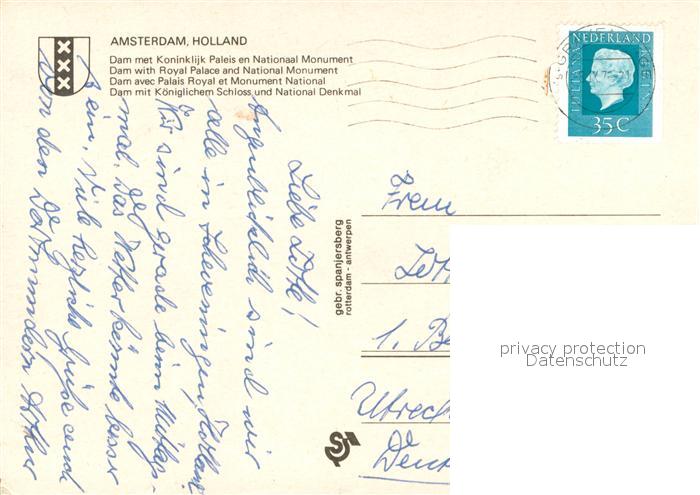 AMSTERDAM, HOLLAND
Dam met Koninklijk Paleis en Nationaal Monument
Dam with Royal Palace and National Monument
Dam avec Palais Royal et Monument National
Dam mit Königlichem Schloss und National Denkmal
NEDERLAND
JULIANA
35 C
Liebe Lotte!
Augenblicklich sind wir
alle in Scheveningen, Holland
Wir sind gerade beim Mittags-
mal. Das Wetter könnte besser
sein. Viele herzliche Grüße euch
von den Dortmundern Arthur
gebr. spanjersberg
rotterdam - antwerpen
Lott
1. Be
Utrech
privacy protection
Datenschutz